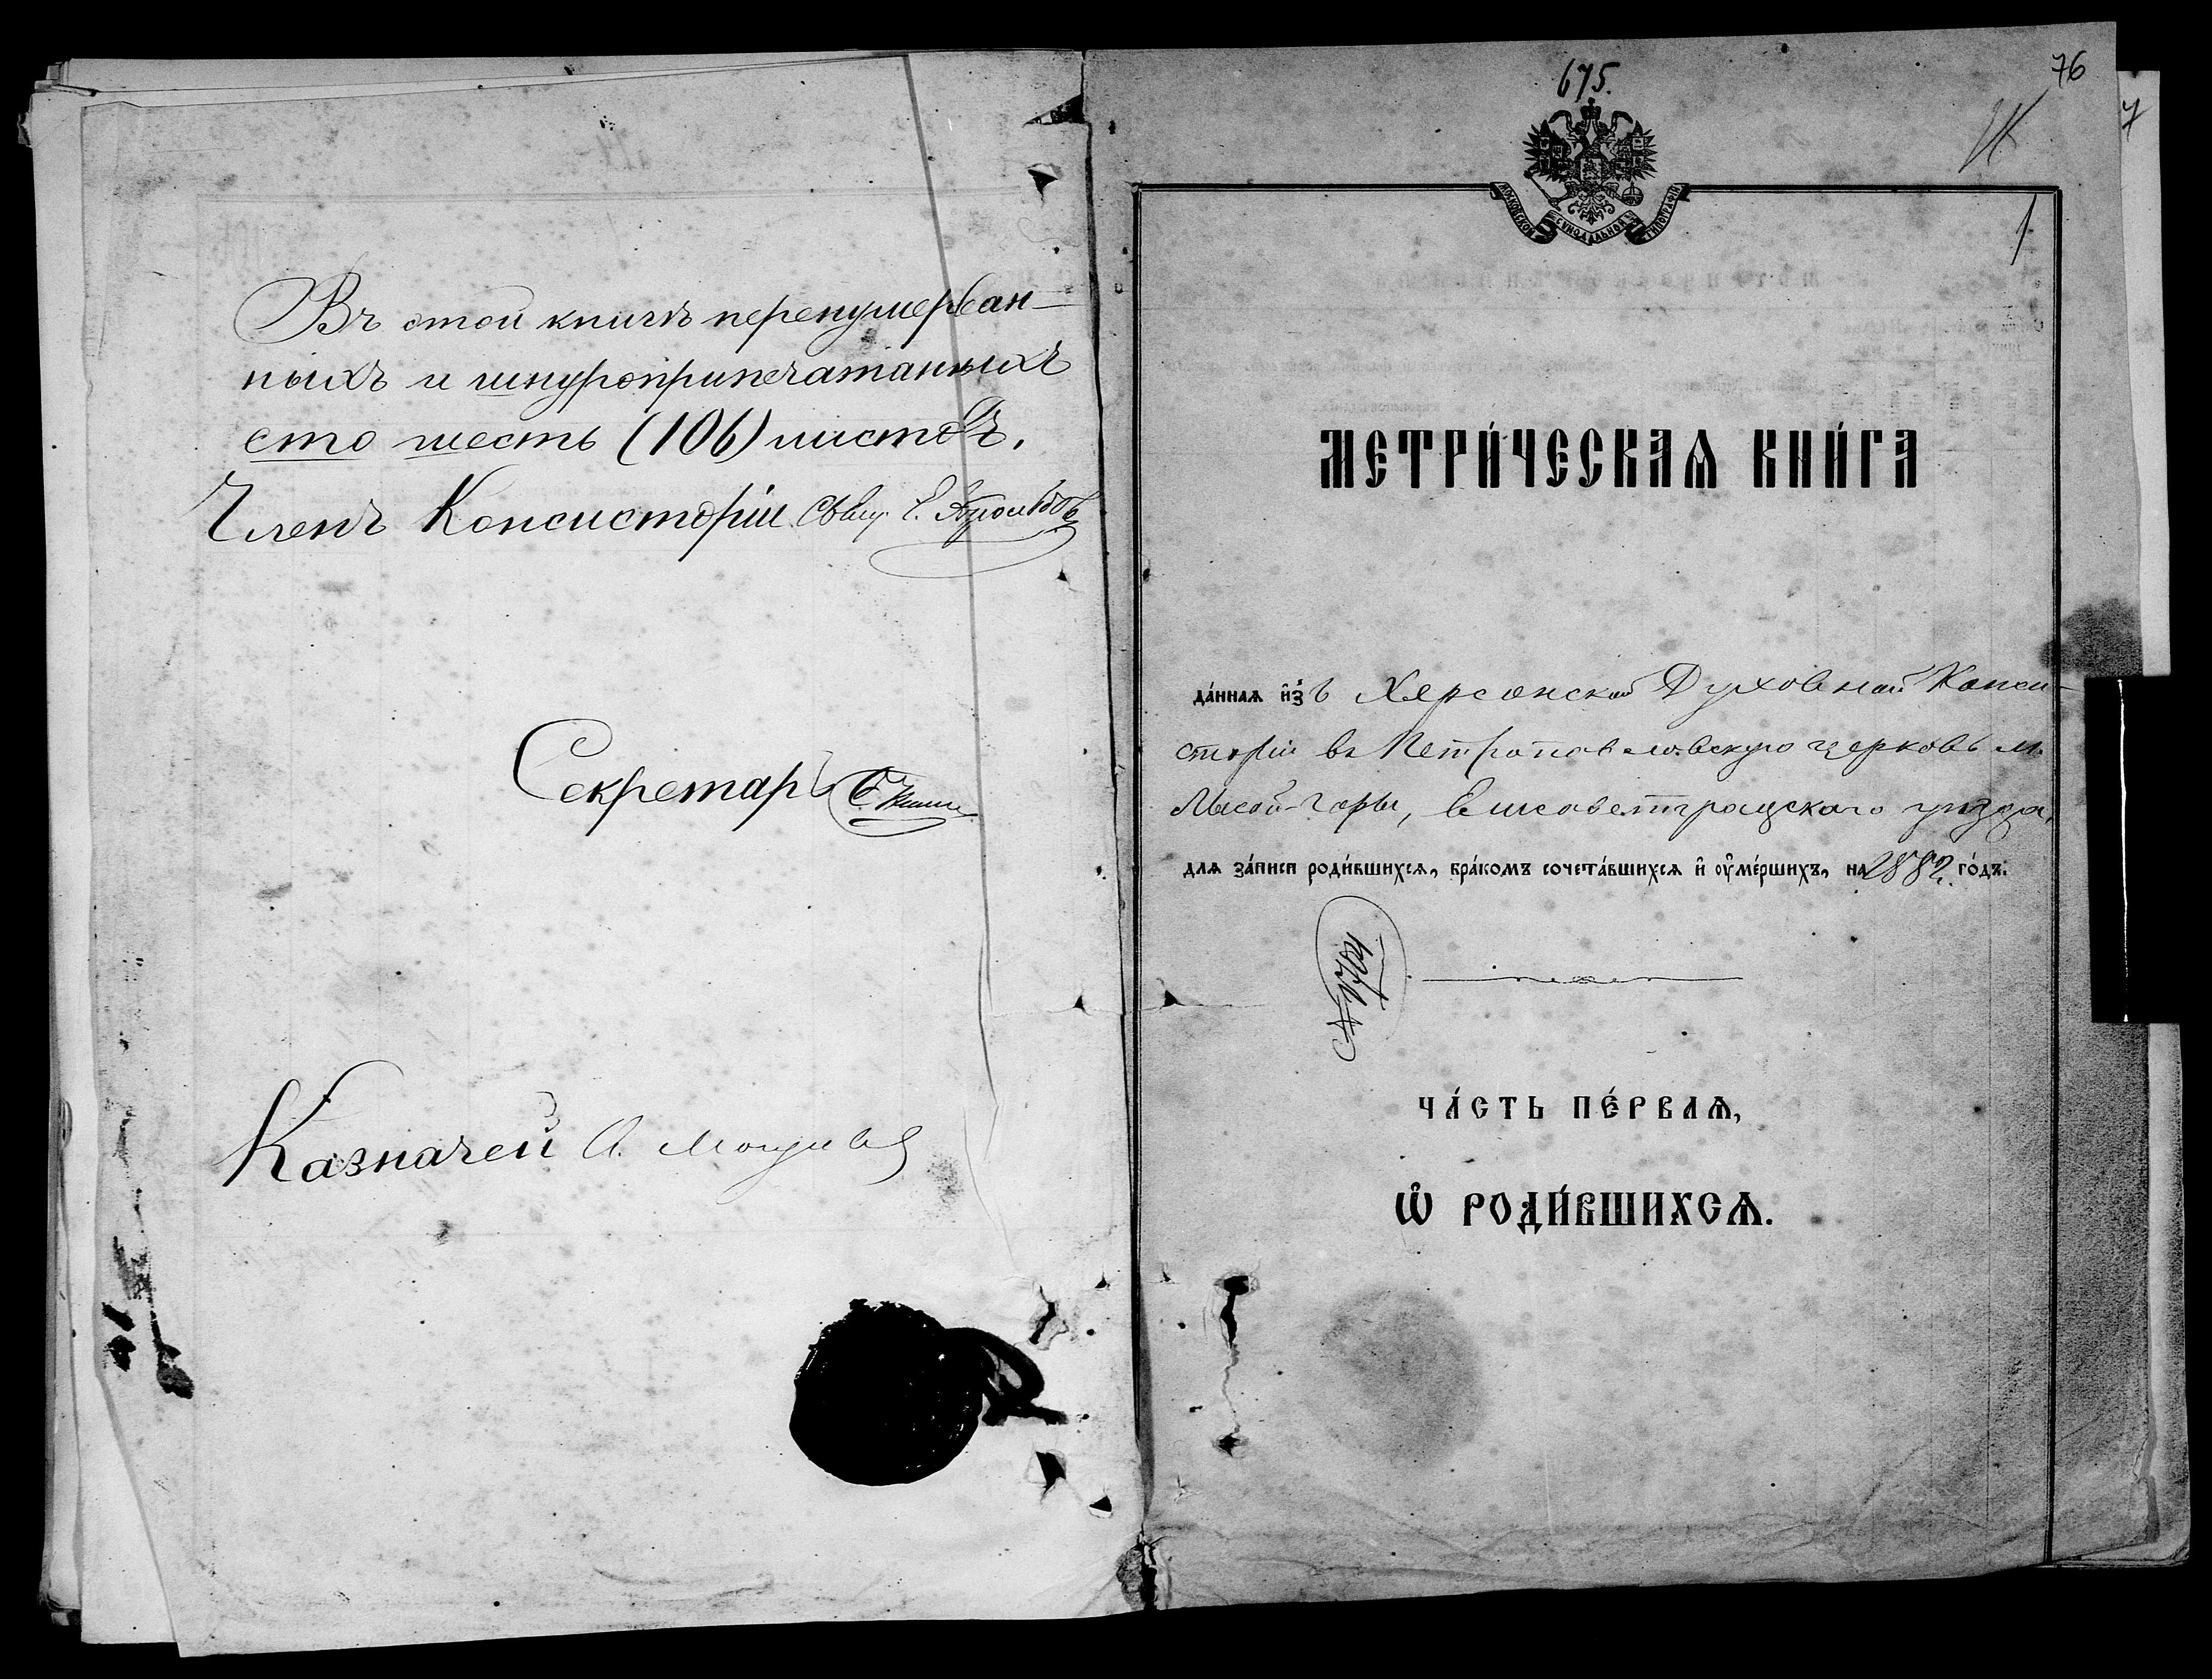 Въ этой книгѣ перенумерован-
ныхъ и шнуроприпечатанныхъ
сто шесть (106) листовъ.
Членъ Консисторіи Свящ. Е.
Секретарь
Казначей А.
675.
76
7
1
МОСКОВСКОЙ СѴНОДАЛЬНОЙ ТИПОГРАФІИ
МЕТРИ́ЧЕСКАѦ КНИ́ГА
да́ннаѧ и҆з̾ъ Херсонской Духовной Конси-
сторіи въ Петропавловскую церковь м.
Лысой-Горы, Елисаветградскаго уѣзда,
длѧ за́писи роди́вшихсѧ, бра́комъ сочета́вшихсѧ и҆ ᲂу҆ме́ршихъ, на 1882 го́дъ.
ЧА́СТЬ ПЕ́РВАѦ,
Ѡ҆ РОДИ́ВШИХСѦ.